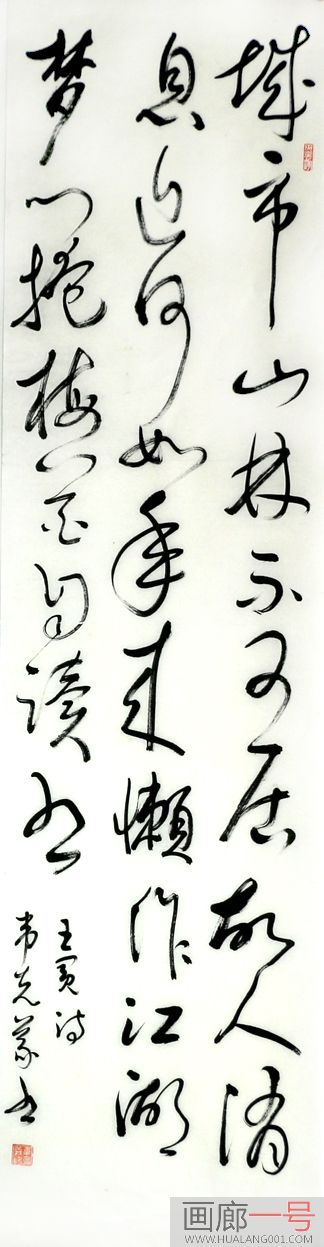 城市山林不可居故人消
息近何如年来懒作江湖
梦门掩梅自读书
王冕诗
韦克义书
画廊一号
WWW.HUALANG001.COM